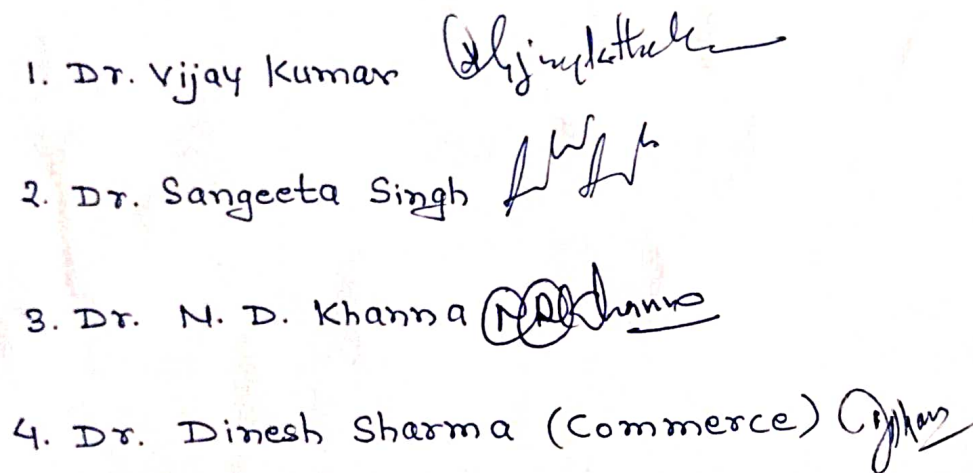 1. Dr. Vijay Kumar
2. Dr. Sangeeta Singh
3. Dr. N. D. Khanna
4. Dr. Dinesh Sharma (Commerce)